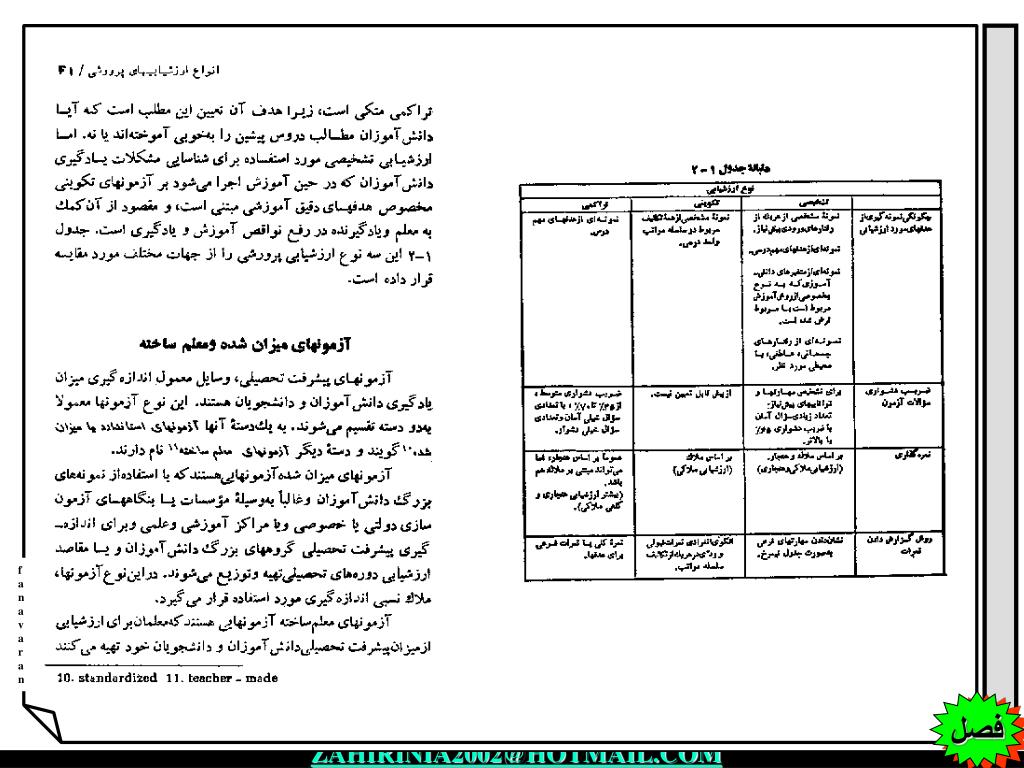 انواع ارزشیابیهای پرورشی / ۴۱
تراکمی متکی است، زیرا هدف آن تعیین این مطلب است که آیا
دانش‌آموزان مطالب دروس پیشین را به‌خوبی آموخته‌اند یا نه. اما
ارزشیابی تشخیصی مورد استفاده برای شناسایی مشکلات یادگیری
دانش‌آموزان که در حین آموزش اجرا می‌شود بر آزمونهای تکوینی
مخصوص هدفهای دقیق آموزشی مبتنی است، و مقصود از آن کمك
به معلم ویادگیرنده در رفع نواقص آموزش و یادگیری است. جدول
۲-۱ این سه نوع ارزشیابی پرورشی را از جهات مختلف مورد مقایسه
قرار داده است.
آزمونهای میزان شده ومعلم ساخته
آزمونهای پیشرفت تحصیلی، وسایل معمول اندازه‌گیری میزان
یادگیری دانش‌آموزان و دانشجویان هستند. این نوع آزمونها معمولا
به‌دو دسته تقسیم می‌شوند. به یك‌دستهٔ آنها آزمونهای استاندارد یا میزان
شده۱۰ گویند و دستهٔ دیگر آزمونهای معلم ساخته۱۱ نام دارند.
آزمونهای میزان شده آزمونهایی هستندکه با استفاده‌از نمونه‌های
بزرگ دانش‌آموزان وغالباً به‌وسیلهٔ مؤسسات یا بنگاههای آزمون
سازی دولتی یا خصوصی ویا مراکز آموزشی وعلمی وبرای اندازه-
گیری پیشرفت تحصیلی گروههای بزرگ دانش‌آموزان و یا مقاصد
ارزشیابی دوره‌های تحصیلی‌تهیه وتوزیع می‌شوند. دراین‌نوع‌آزمونها،
ملاك نسبی اندازه‌گیری مورد استفاده قرار می‌گیرد.
آزمونهای معلم‌ساخته آزمونهایی هستندکه‌معلمان‌برای ارزشیابی
ازمیزان‌پیشرفت تحصیلی‌دانش‌آموزان و دانشجویان خود تهیه می‌کنند
10. standardized 11. teacher - made
جدول ۱ - ۲
نوع ارزشیابی
تشخیصی تکوینی تراکمی
چگونگی‌نمونه‌گیری‌از
هدفهای‌مورد ارزشیابی
نمونهٔ مشخصی از هریك از
رفتارهای‌ورودی‌پیش‌نیاز.
نمونه‌ای‌ازهدفهای‌مهم‌درسی.
نمونه‌ای‌ازمتغیرهای دانش-
آموزی‌که به نوع
بخصوصی‌ازروش‌آموزش
مربوط است یا مربوط
فرض شده است.
نمونه‌ای از رفتارهای
جسمانی، عاطفی، یا
محیطی مورد نظر.
نمونهٔ مشخص‌ازهمهٔ‌تکالیف
مربوط دو سلسله مراتب
واحد درسی.
نمونه‌ای ازهدفهای مهم
درس.
ضریب دشواری
سؤالات آزمون
برای تشخیص مهارتها و
تواناییهای پیش‌نیاز:
تعداد زیادی‌سؤال آسان
با ضریب دشواری ۶۵٪
یا بالاتر.
از پیش قابل تعیین نیست.
ضریب دشواری متوسط،
از ۳۵٪ تا ۷۰٪، با تعدادی
سؤال خیلی آسان وتعدادی
سؤال خیلی دشوار.
نمره‌گذاری
بر اساس ملاك و هنجار.
(ارزشیابی‌ملاکی‌وهنجاری)
بر اساس ملاك
(ارزشیابی ملاکی)
عموماً بر اساس هنجار، اما
می‌تواند مبتنی بر ملاك هم
باشد.
(بیشتر ارزشیابی هنجاری و
گاهی ملاکی).
روش گزارش دادن
نمرات
نشان‌دادن مهارتهای فرعی
به‌صورت جدول نیمرخ.
الگوی‌انفرادی نمرات‌قبولی
و ردی‌درهریك‌ازتکالیف
سلسله مراتب.
نمرهٔ کلی یا نمرات فرعی
برای هدفها.
fanavaran
فصل
ZAHIRINIA2002@HOTMAIL.COM